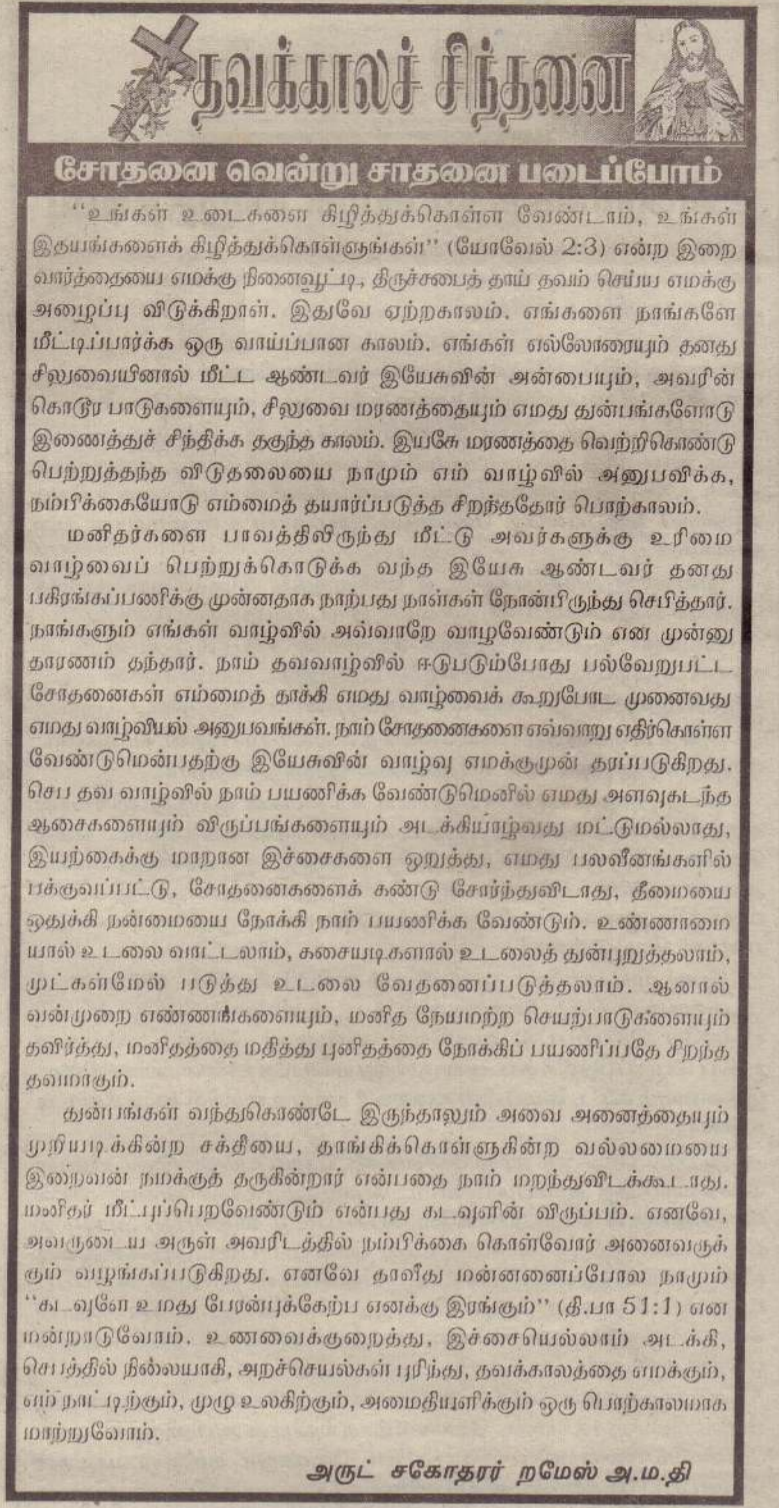 தவக்காலச் சிந்தனை
சோதனை வென்று சாதனை படைப்போம்
‘‘உங்கள் உடைகளை கிழித்துக்கொள்ள வேண்டாம், உங்கள்
இதயங்களைக் கிழித்துக்கொள்ளுங்கள்’’ (யோவேல் 2:3) என்ற இறை
வார்த்தையை எமக்கு நினைவூட்டி, திருச்சபைத் தாய் தவம் செய்ய எமக்கு
அழைப்பு விடுக்கிறாள். இதுவே ஏற்றகாலம். எங்களை நாங்களே
மீட்டிப்பார்க்க ஒரு வாய்ப்பான காலம். எங்கள் எல்லோரையும் தனது
சிலுவையினால் மீட்ட ஆண்டவர் இயேசுவின் அன்பையும், அவரின்
கொடூர பாடுகளையும், சிலுவை மரணத்தையும் எமது துன்பங்களோடு
இணைத்துச் சிந்திக்க தகுந்த காலம். இயசே மரணத்தை வெற்றிகொண்டு
பெற்றுத்தந்த விடுதலையை நாமும் எம் வாழ்வில் அனுபவிக்க,
நம்பிக்கையோடு எம்மைத் தயார்ப்படுத்த சிறந்ததோர் பொற்காலம்.
மனிதர்களை பாவத்திலிருந்து மீட்டு அவர்களுக்கு உரிமை
வாழ்வைப் பெற்றுக்கொடுக்க வந்த இயேசு ஆண்டவர் தனது
பகிரங்கப்பணிக்கு முன்னதாக நாற்பது நாள்கள் நோன்பிருந்து செபித்தார்.
நாங்களும் எங்கள் வாழ்வில் அவ்வாறே வாழவேண்டும் என முன்னு
தாரணம் தந்தார். நாம் தவவாழ்வில் ஈடுபடும்போது பல்வேறுபட்ட
சோதனைகள் எம்மைத் தாக்கி எமது வாழ்வைக் கூறுபோட முனைவது
எமது வாழ்வியல் அனுபவங்கள். நாம் சோதனைகளை எவ்வாறு எதிர்கொள்ள
வேண்டுமென்பதற்கு இயேசுவின் வாழ்வு எமக்குமுன் தரப்படுகிறது.
செப தவ வாழ்வில் நாம் பயணிக்க வேண்டுமெனில் எமது அளவுகடந்த
ஆசைகளையும் விருப்பங்களையும் அடக்கியாழ்வது மட்டுமல்லாது,
இயற்கைக்கு மாறான இச்சைகளை ஒறுத்து, எமது பலவீனங்களில்
பக்குவப்பட்டு, சோதனைகளைக் கண்டு சோர்ந்துவிடாது, தீமையை
ஒதுக்கி நன்மையை நோக்கி நாம் பயணிக்க வேண்டும். உண்ணாமை
யால் உடலை வாட்டலாம், கசையடிகளால் உடலைத் துன்புறுத்தலாம்,
முட்கள்மேல் படுத்து உடலை வேதனைப்படுத்தலாம். ஆனால்
வன்முறை எண்ணங்களையும், மனித நேயமற்ற செயற்பாடுகளையும்
தவிர்த்து, மனிதத்தை மதித்து புனிதத்தை நோக்கிப் பயணிப்பதே சிறந்த
தவமாகும்.
துன்பங்கள் வந்துகொண்டே இருந்தாலும் அவை அனைத்தையும்
முறியடிக்கின்ற சக்தியை, தாங்கிக்கொள்ளுகின்ற வல்லமையை
இறைவன் நமக்குத் தருகின்றார் என்பதை நாம் மறந்துவிடக்கூடாது.
மனிதர் மீட்புப்பெறவேண்டும் என்பது கடவுளின் விருப்பம். எனவே,
அவருடைய அருள் அவரிடத்தில் நம்பிக்கை கொள்வோர் அனைவருக்
கும் வழங்கப்படுகிறது. எனவே தாவீது மன்னனைப்போல நாமும்
‘‘கடவுளே உமது பேரன்புக்கேற்ப எனக்கு இரங்கும்’’ (தி.பா 51:1) என
மன்றாடுவோம். உணவைக்குறைத்து, இச்சையெல்லாம் அடக்கி,
செபத்தில் நிலையாகி, அறச்செயல்கள் புரிந்து, தவக்காலத்தை எமக்கும்,
எம் நாட்டிற்கும், முழு உலகிற்கும், அமைதியளிக்கும் ஒரு பொற்காலமாக
மாற்றுவோம்.
அருட் சகோதரர் றமேஸ் அ.ம.தி